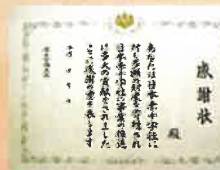 感謝状
殿
あなたは日本赤十字社に
対し多額の財産を寄附され
日本赤十字社の事業の推進
に多大の貢献をされました
ここに感謝の意を表します